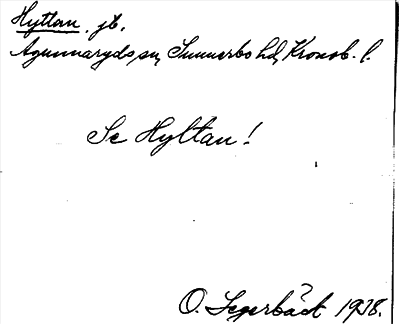 Hyttan. jb.
Agunnaryds sn, Sunnerbo hd, Kronob. l.
Se Hyltan!
O. Segerbäck 1938.